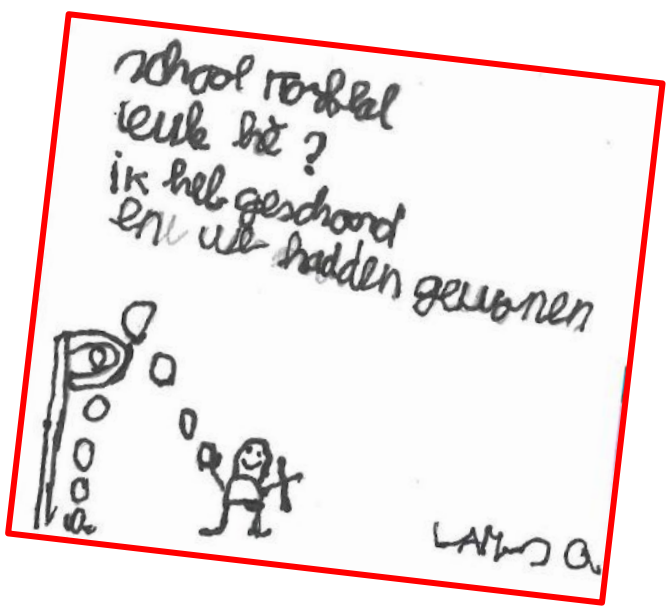 school korfbal
leuk hè?
ik heb geschoord
en we hadden gewonen